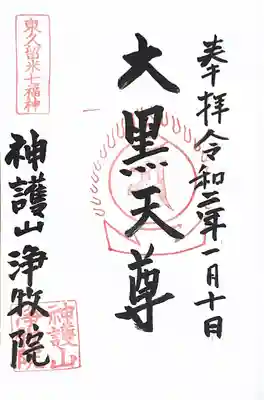 奉拝令和二年一月十日
大黒天尊
東久留米七福神
神護山浄牧院
神護山